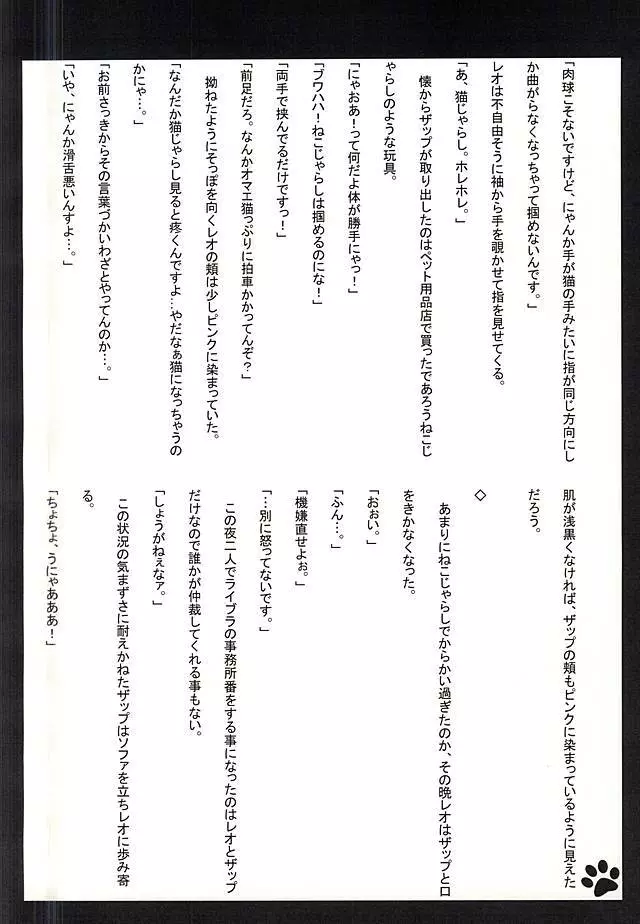 「肉球こそないですけど、にゃんか手が猫の手みたいに指が同じ方向にし
か曲がらなくなっちゃって掴めないんです。」
レオは不自由そうに袖から手を覗かせて指を見せてくる。
「あ、猫じゃらし。ホレホレ。」
懐からザップが取り出したのはペット用品店で買ったであろうねこじ
ゃらしのような玩具。
「にゃおあ!って何だよ体が勝手にゃっ!」
「ブワハハ!ねこじゃらしは掴めるのにな!」
「両手で挟んでるだけですっ!」
「前足だろ。なんかオマエ猫っぷりに拍車かかってんぞ?」
拗ねたようにそっぽを向くレオの頬は少しピンクに染まっていた。
「なんだか猫じゃらし見ると疼くんですよ…やだなぁ猫になっちゃうの
かにゃ…。」
「お前さっきからその言葉づかいわざとやってんのか…。」
「いや、にゃんか滑舌悪いんすよ…。」
肌が浅黒くなければ、ザップの頬もピンクに染まっているように見えた
だろう。
◇
あまりにねこじゃらしでからかい過ぎたのか、その晩レオはザップと口
をきかなくなった。
「おぉい。」
「ふん…。」
「機嫌直せよぉ。」
「…別に怒ってないです。」
この夜二人でライブラの事務所番をする事になったのはレオとザップ
だけなので誰かが仲裁してくれる事もない。
「しょうがねぇなァ。」
この状況の気まずさに耐えかねたザップはソファを立ちレオに歩み寄
る。
「ちょちょ、うにゃあああ!」